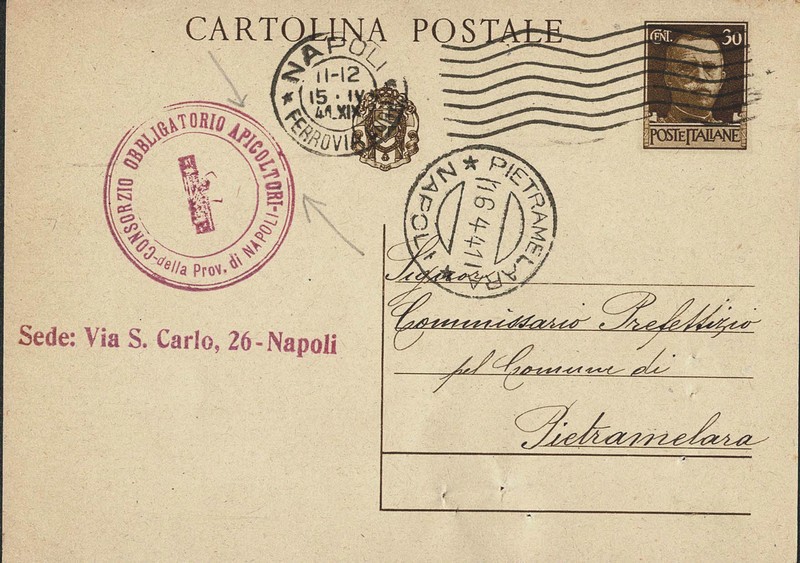 CARTOLINA POSTALE
CENT. 30
POSTE ITALIANE
NAPOLI
11-12
15 · IV
41.XIX
FERROVIA
CONSORZIO OBBLIGATORIO APICOLTORI-
-della Prov. di NAPOLI-
PIETRAMELARA
16 4 41
NAPOLI
Sede: Via S. Carlo, 26-Napoli
Signor
Commissario Prefettizio
pel Comune di
Pietramelara